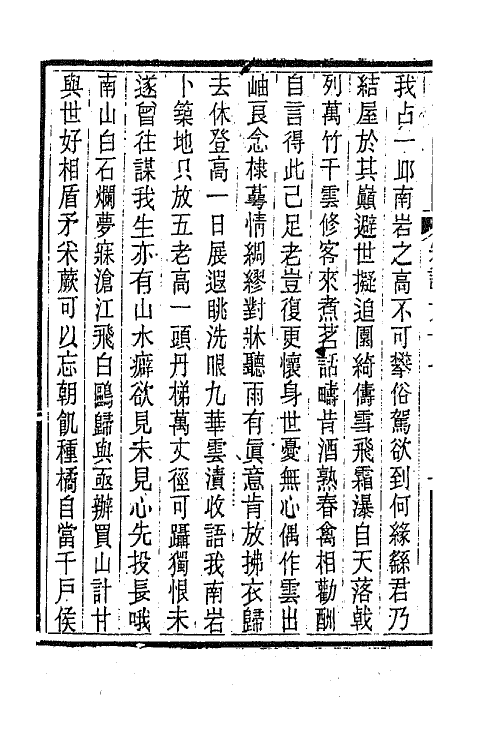 我占一邱南岩之高不可攀俗駕欲到何緣繇君乃
結屋於其巔避世擬追園綺儔雪飛霜瀑自天落戟
列萬竹干雲修客來煮茗話疇昔酒熟春禽相勸酬
自言得此已足老豈復更懷身世憂無心偶作雲出
岫良念棣蕚情綢繆對牀聽雨有眞意肯放拂衣歸
去休登高一日展遐眺洗眼九華雲漬收語我南岩
卜築地只放五老高一頭丹梯萬丈徑可躡獨恨未
遂曾往謀我生亦有山水癖欲見未見心先投長哦
南山白石爛夢寐滄江飛白鷗歸與亟辦買山計甘
與世好相盾矛采蕨可以忘朝飢種橘自當千戶侯